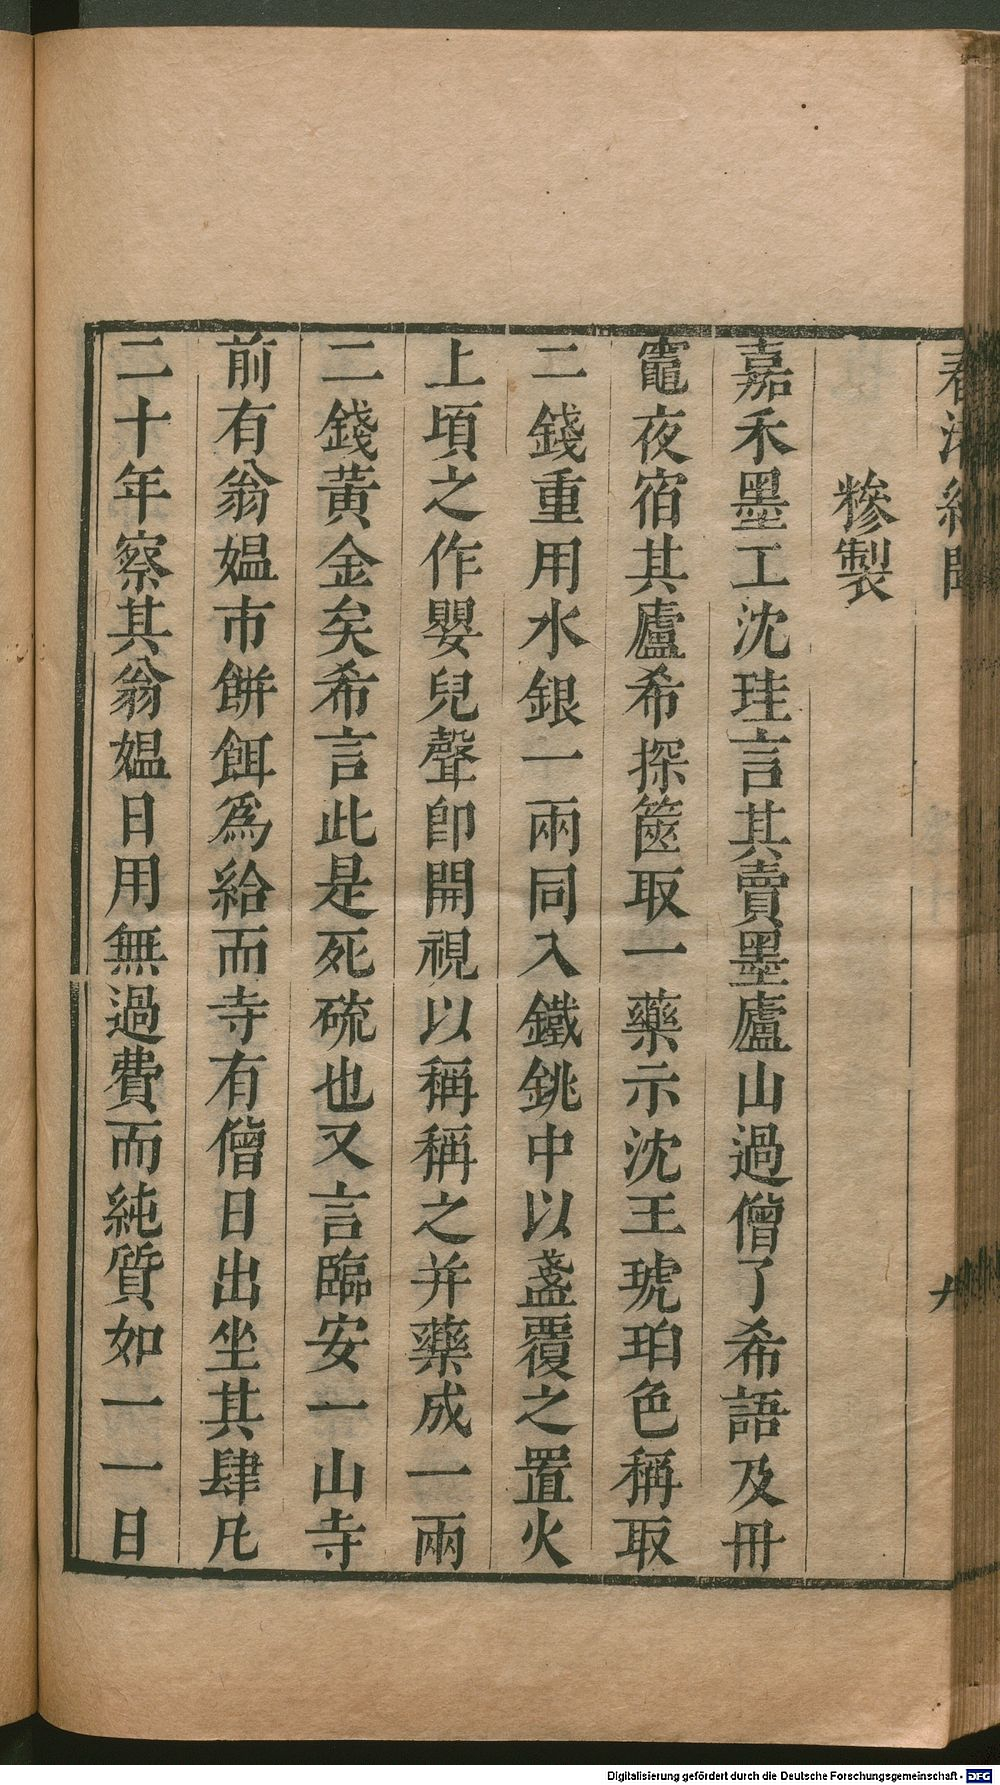 春渚紀聞
糝製
嘉禾墨工沈珪言其賣墨廬山過僧了希語及丹
竈夜宿其廬希探篋取一藥示沈王琥珀色稱取
二錢重用水銀一兩同入鐵銚中以盞覆之置火
上頃之作嬰兒聲卽開視以稱稱之并藥成一兩
二錢黃金矣希言此是死硫也又言臨安一山寺
前有翁媼市餅餌爲給而寺有僧日出坐其肆凡
二十年察其翁媼日用無過費而純質如一一日
Digitalisierung gefördert durch die Deutsche Forschungsgemeinschaft - DFG